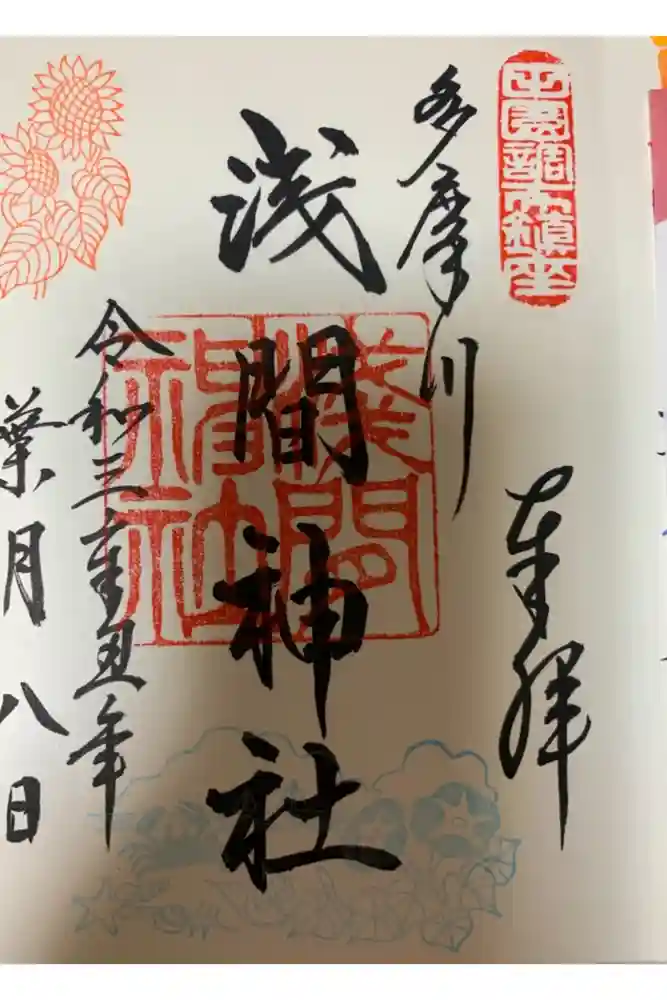 田園調布鎮座
奉拝
多摩川
浅間神社
淺間神社
令和三辛丑年
葉月八日